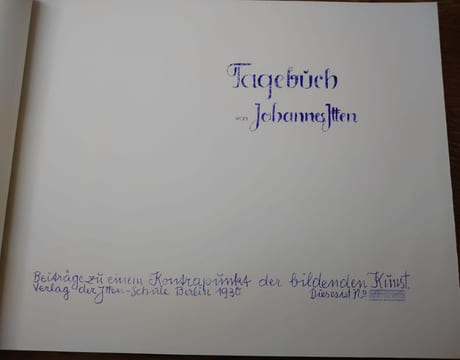 Tagebuch
von Johannes Itten
Beiträge zu einem Kontrapunkt der bildenden Kunst.
Verlag der Itten-Schule Berlin 1930. Dieses ist No